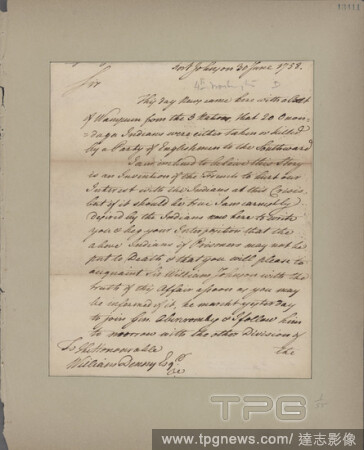 Fort Johnson 30 June 1758.
Sir
This day News came here with a Belt
of Wampum from the 5 Nations that 20 Onon=
daga Indians were either taken or killed
by a Party of Englishmen to the Southward
I am inclined to believe this Story
is an Invention of the French to hurt our
Interest with the Indians at this Crisis,
but if it should be true I am earnestly
desired by the Indians now here to write
you & beg your Interposition that the
above Indians if Prisoners may not be
put to Death & that you will please to
acquaint Sir William Johnson with the
truth of this Affair as soon as you may
be informed of it, he marcht yesterday
to join Gen. Abercromby & I follow him
to morrow with the other Division of
the
To the Honourable
William Denny Esqr.
TPG
www.tpgnews.com/達志影像